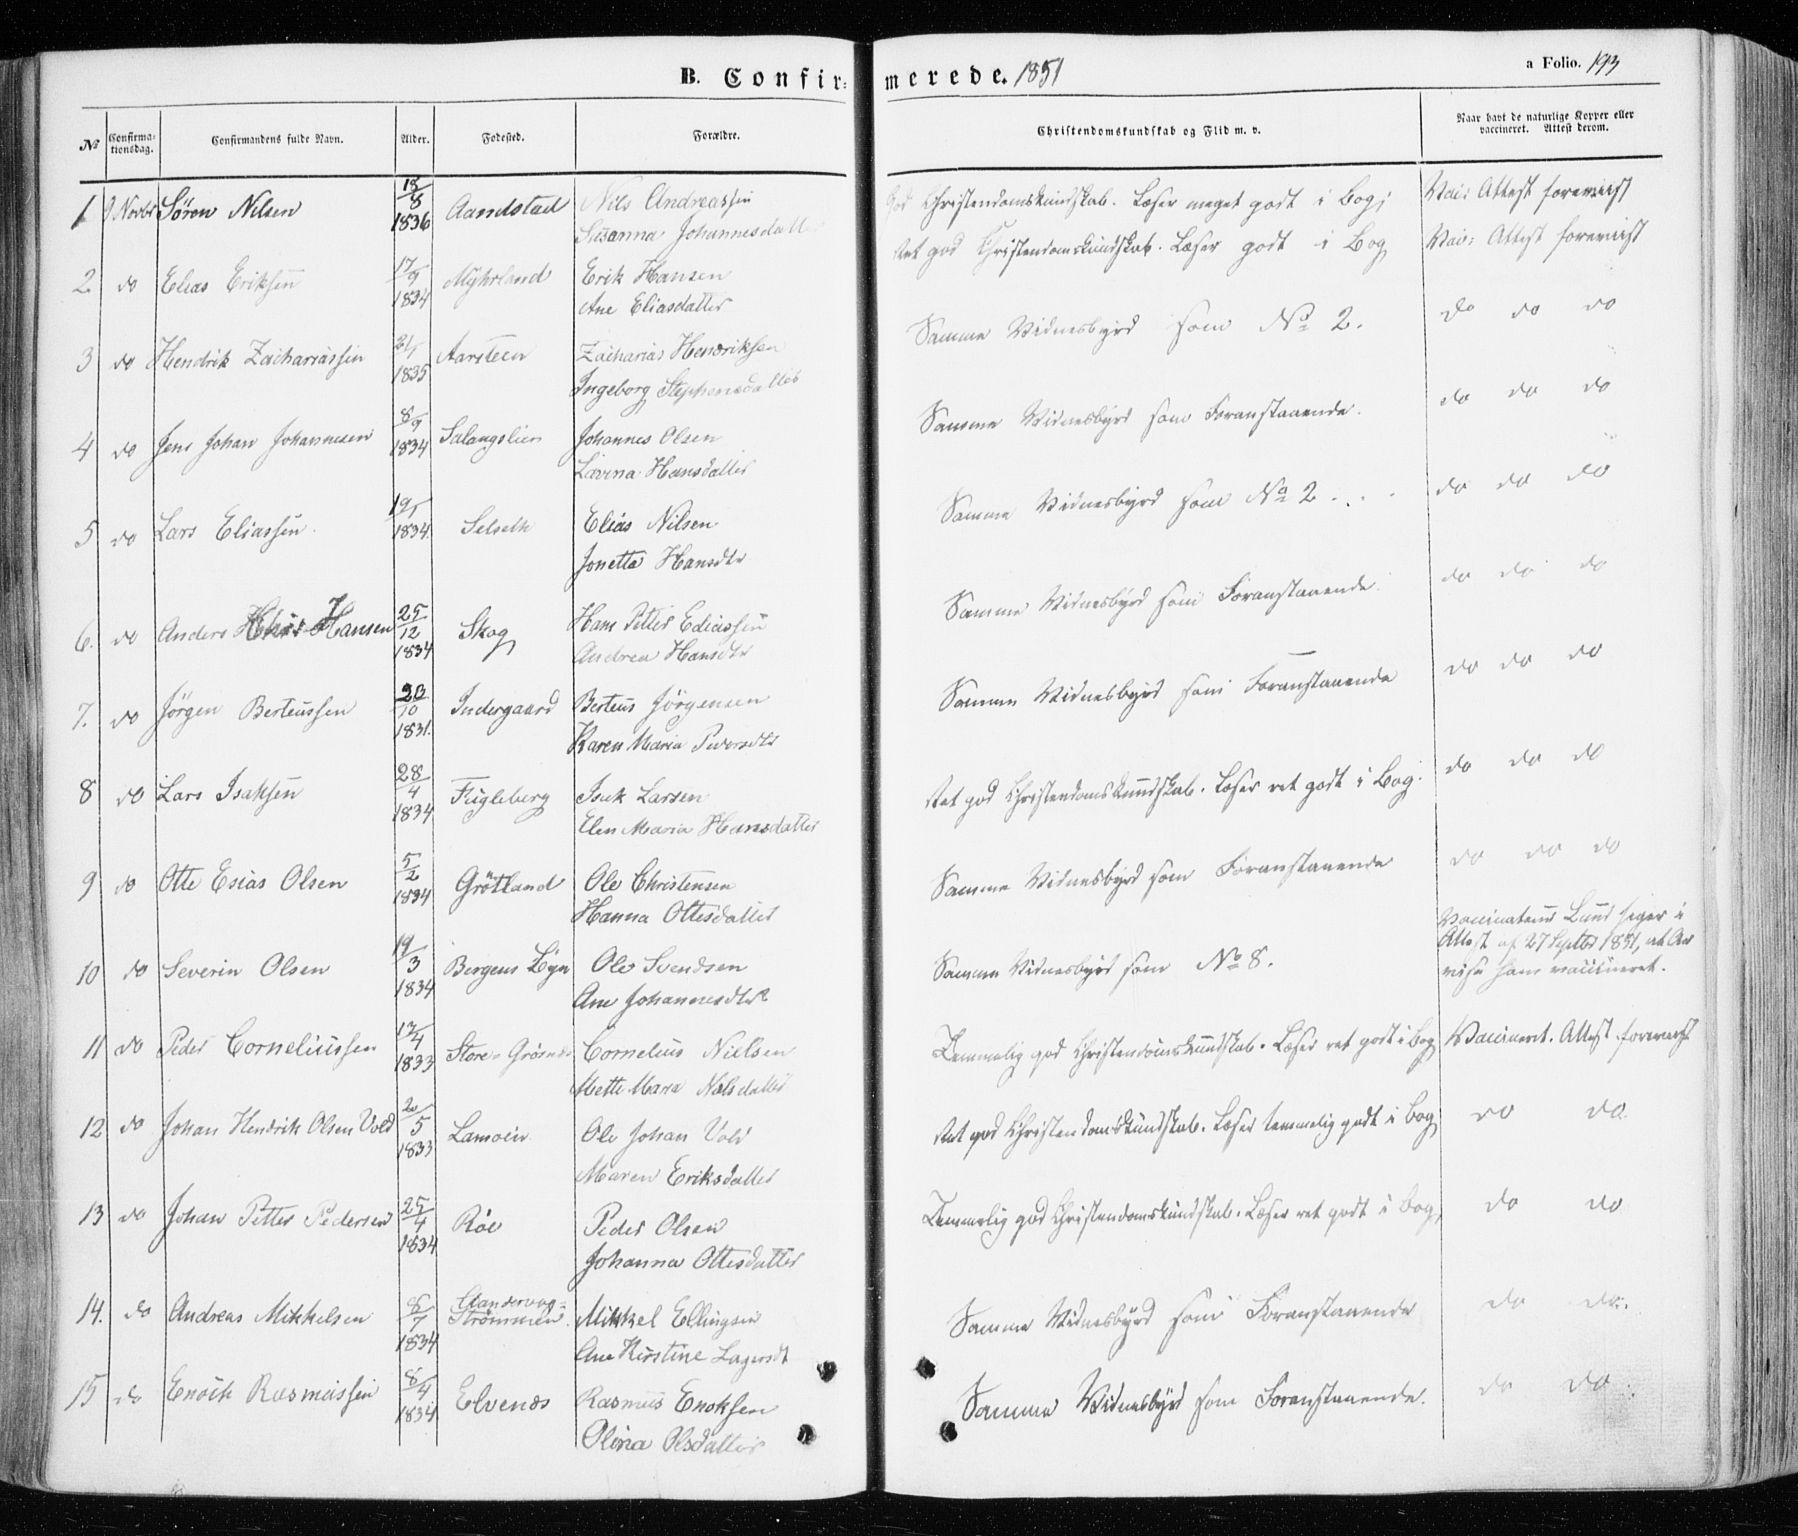 B. Confir= merede. 1851
a Folio. 193
No Confirma= tionsdag. Confirmandens fulde Navn. Alder. Fødested. Forældre. Christendomskundskab og Flid m. v. Naar havt de naturlige Kopper eller vaccineret. Attest derom.
1 9 Novbr Søren Nilsen 18/8 1836 Aandstad Nils Andreassen God Christendomskundskab. Læser meget godt i Bog; Vac: Attest foreviist
Susanna Johannesdatter
2 do Elias Eriksen 17/9 1834 Myhrland Erik Hansen Ret god Christendomskundskab. Læser godt i Bog Vac: Attest foreviist
Ane Eliasdatter
3 do Hendrik Zachariassen 1835 Aarsteen Zacharias Hendriksen Samme Vidnesbyrd som No 2. do do do
Ingeborg Stephensdatter
4 do Jens Johan Johannesen 8/9 1834 Salangslien Johannes Olsen Samme Vidnesbyrd som Foranstaaende. do do do
Lavina Hansdatter
5 do Lars Eliassen 1834. Selseth Elias Nilsen Samme Vidnesbyrd som No 2 . . . do do do
Jonetta Hansdtr
6. do Anders Hansen 25/12 1834 Skog Hans Petter Eliassen Samme Vidnesbyrd som Foranstaaende. do do do
Andrea Hansdtr
7. do Jørgen Berteussen 20/10 1831. Indergaard Berteus Jörgensen Samme Vidnesbyrd som Foranstaaende do do do
Karen Maria Pedersdtr
8 do Lars Isaksen 28/4 1834 Fugleberg Isak Larsen Ret god Christendomskundskab. Læser ret godt i Bog. do do do
Elen Maria Hansdatter
9 do Otte Esias Olsen 5/2 1834 Grötland Ole Christensen Samme Vidnesbyrd som Foranstaaende do do do
Hanna Ottesdatter
10 do Severin Olsen 19/3 1834 Bergens Byn Ole Svendsen Samme Vidnesbyrd som No 8. Vaccinateur Lund siger i
Attest af 27 Septbr 1851, at have
Ane Johannesdtr ham vaccineret.
11 do Peder Corneliussen 17/4 1833 Store= Grösnes Cornelius Nielsen Temmelig god Christendomskundskab. Læser ret godt i Bog Vaccineret. Attest foreviist
Mette Maria Nilsdatter
12 do Johan Hendrik Olsen Vold 2/5 1833 Lamoen Ole Johan Vold Ret god Christendomskundskab. Læser temmelig godt i Bog do do
Maren Eriksdatter
13 do Johan Petter Pedersen 25/4 1834 Röe Peder Olsen Temmelig god Christendomskundskab. Læser ret godt i Bog, do do
Johanna Ottesdatter
14. do Andreas Mikkelsen 6/7 1834 Strömmen. Mikkel Ellingsen Samme Vidnesbyrd som Foranstaaende do do
Ane Kirstine Lagersdt
15 do Enoch Rasmussen 8/4 1834 Elvenes Rasmus Enoksen Samme Vidnesbyrd som Foranstaaende. do do
Olina Olsdatter